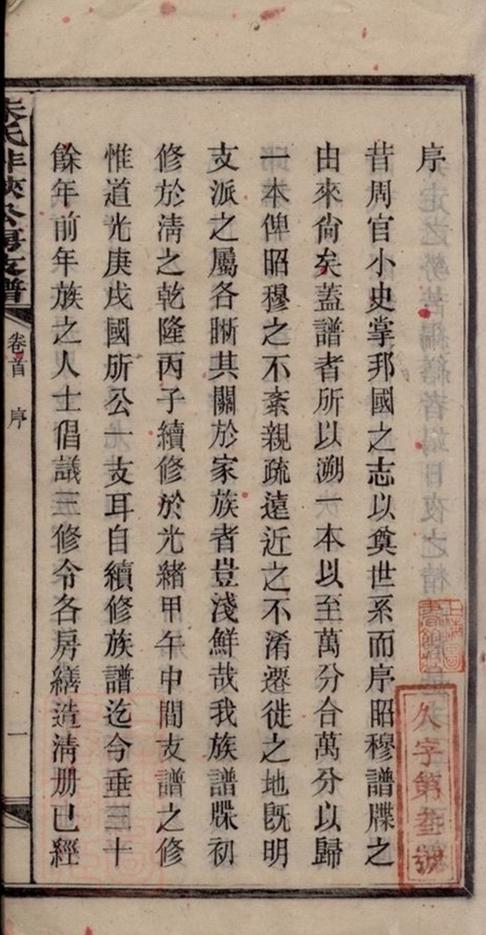 序
昔周官小史掌邦國之志以奠世系而序昭穆譜牒之
由來尙矣蓋譜者所以溯一本以至萬分合萬分以歸
一本俾昭穆之不紊親疏遠近之不淆遷徙之地旣明
支派之屬各晰其關於家族者豈淺鮮哉我族譜牒初
修於淸之乾隆丙子續修於光緖甲午中間支譜之修
惟道光庚戌國所公一支耳自續修族譜迄今垂三十
餘年前年族之人士倡議三修令各房繕造淸册已經
朱氏非族公房支譜
卷首
序
一
久字第叁號